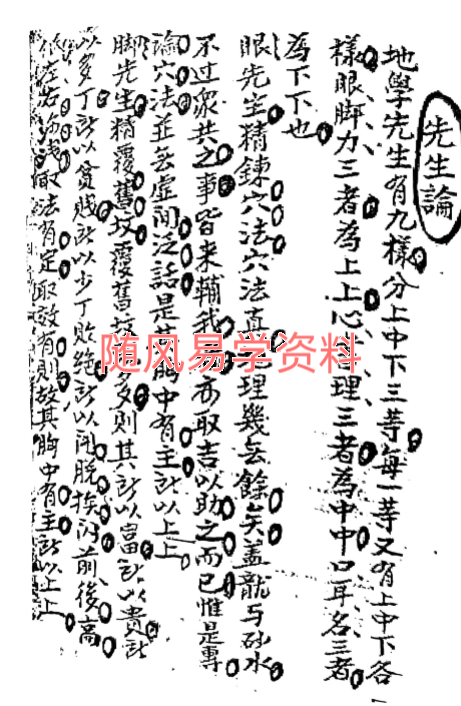 先生論
地學先生有九樣分上中下三等每一等又有上中下各一
樣眼脚力三者為上上心 理三者為中中口耳名三者
為下下也
眼先生精鍊穴法穴法真 理幾無餘矣盖龍与砂水
不过衆共之事皆来輔我 亦取吉以助之而已惟是專
論穴法並無虚閒泛話是其胸中有主所以上上
脚先生精覆舊坟覆舊坟 多則其所以富所以貴所
以多丁所以貧賤所以少丁敗絶所以閃脱挨 前後高
低左右 淺 法有定取效有則故其胸中有主所以上上
随风易学资料